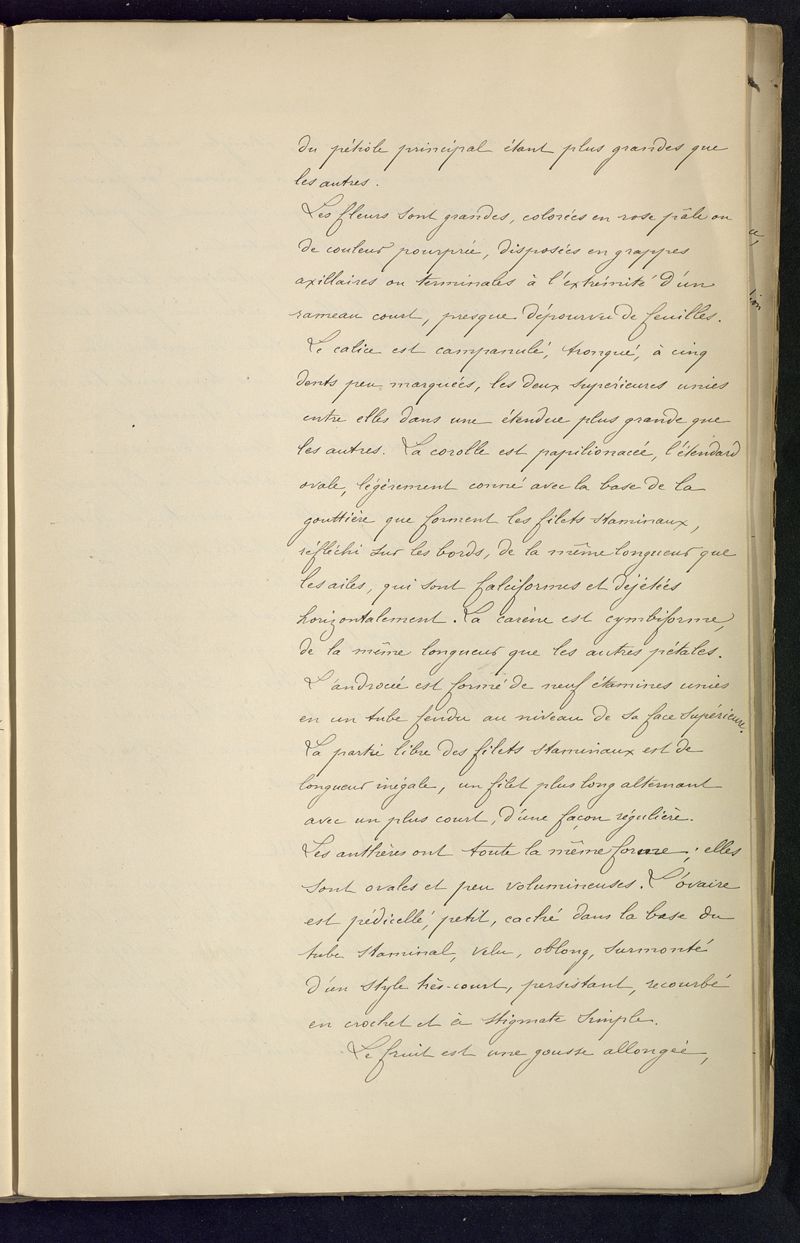 du pétiole principal étant plus grandes que
les autres.
Les fleurs sont grandes, colorées en rose pâle ou
de couleur pourprée, disposées en grappes
axillaires ou terminales à l'extrémité d'un
rameau court, presque dépourvu de feuilles.
Le calice est campanulé, tronqué, à cinq
dents peu marquées, les deux supérieures unies
entre elles dans une étendue plus grande que
les autres. La corolle est papilionacée, l'étendard
ovale, légèrement conné avec la base de la
gouttière que forment les filets staminaux,
réfléchi sur les bords, de la même longueur que
les ailes, qui sont falciformes et déjétées
horizontalement. La carène est cymbiforme,
de la même longueur que les autres pétales.
L'androcée est formé de neuf étamines unies
en un tube fendu au niveau de sa face supérieure.
La partie libre des filets staminaux est de
longueur inégale, un filet plus long alternant
avec un plus court, d'une façon régulière.
Les anthères ont toute la même forme ; elles
sont ovales et peu volumineuses. L'ovaire
est pédicellé, petit, caché dans la base du
tube staminal, velu, oblong, surmonté
d'un style très-court, persistant, recourbé
en crochet et à stigmate simple.
Le fruit est une gousse allongée,